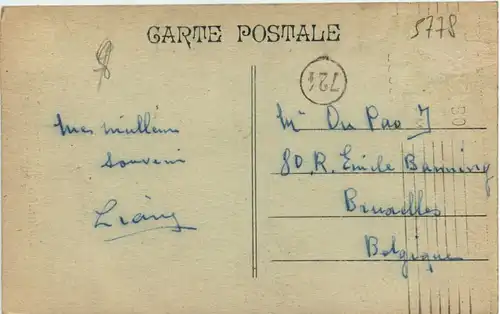 CARTE POSTALE
5778
724
Mes meilleurs
souvenir
Liang
Mr Ou Pao J
80, R. Emile Banning
Bruxelles
Belgique